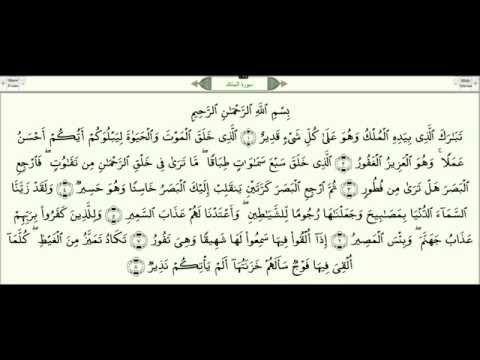 سورة الملك
بِسْمِ ٱللَّهِ ٱلرَّحْمَٰنِ ٱلرَّحِيمِ
تَبَٰرَكَ ٱلَّذِى بِيَدِهِ ٱلْمُلْكُ وَهُوَ عَلَىٰ كُلِّ شَىْءٍ قَدِيرٌ ﴿١﴾ ٱلَّذِى خَلَقَ ٱلْمَوْتَ وَٱلْحَيَوٰةَ لِيَبْلُوَكُمْ أَيُّكُمْ أَحْسَنُ
عَمَلًا ۚ وَهُوَ ٱلْعَزِيزُ ٱلْغَفُورُ ﴿٢﴾ ٱلَّذِى خَلَقَ سَبْعَ سَمَٰوَٰتٍ طِبَاقًا ۖ مَّا تَرَىٰ فِى خَلْقِ ٱلرَّحْمَٰنِ مِن تَفَٰوُتٍ ۖ فَٱرْجِعِ
ٱلْبَصَرَ هَلْ تَرَىٰ مِن فُطُورٍ ﴿٣﴾ ثُمَّ ٱرْجِعِ ٱلْبَصَرَ كَرَّتَيْنِ يَنقَلِبْ إِلَيْكَ ٱلْبَصَرُ خَاسِئًا وَهُوَ حَسِيرٌ ﴿٤﴾ وَلَقَدْ زَيَّنَّا
ٱلسَّمَآءَ ٱلدُّنْيَا بِمَصَٰبِيحَ وَجَعَلْنَٰهَا رُجُومًا لِّلشَّيَٰطِينِ ۖ وَأَعْتَدْنَا لَهُمْ عَذَابَ ٱلسَّعِيرِ ﴿٥﴾ وَلِلَّذِينَ كَفَرُوا۟ بِرَبِّهِمْ
عَذَابُ جَهَنَّمَ ۖ وَبِئْسَ ٱلْمَصِيرُ ﴿٦﴾ إِذَآ أُلْقُوا۟ فِيهَا سَمِعُوا۟ لَهَا شَهِيقًا وَهِىَ تَفُورُ ﴿٧﴾ تَكَادُ تَمَيَّزُ مِنَ ٱلْغَيْظِ ۖ كُلَّمَآ
أُلْقِىَ فِيهَا فَوْجٌ سَأَلَهُمْ خَزَنَتُهَآ أَلَمْ يَأْتِكُمْ نَذِيرٌ ﴿٨﴾